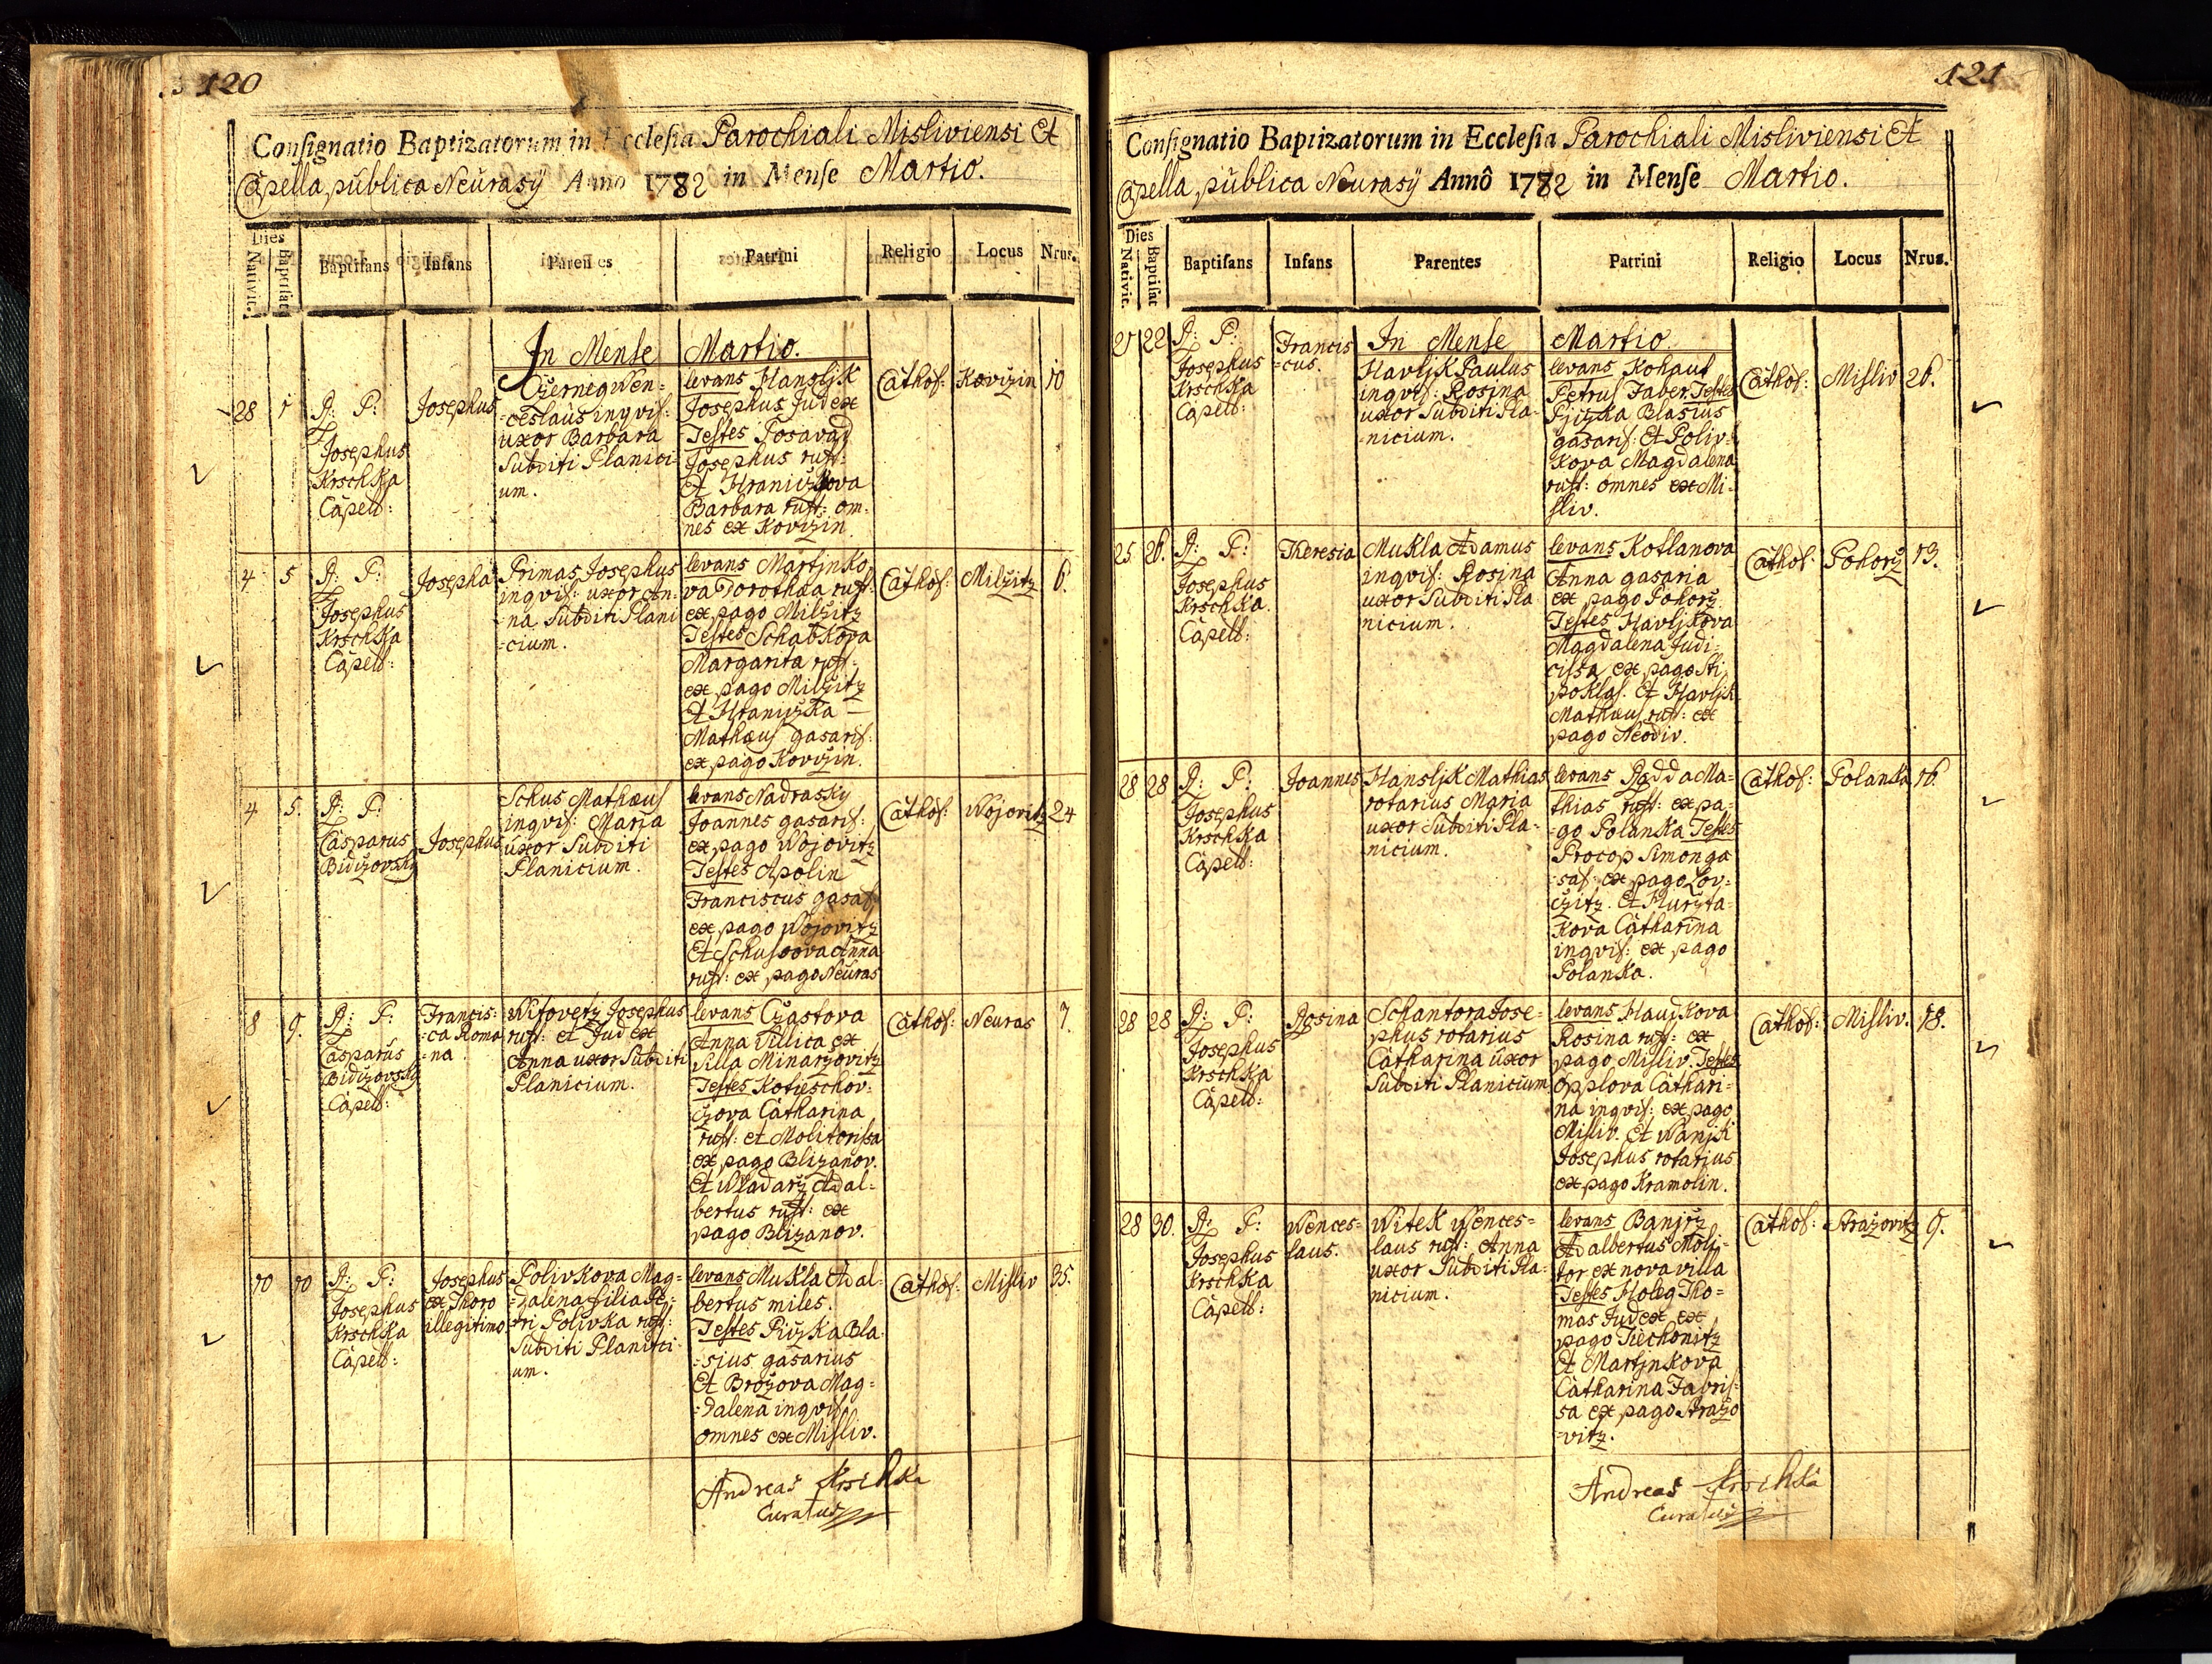 120
Consignatio Baptizatorum in Ecclesia Parochiali Misliviensi Et
Capella publica Neurasÿ Anno 1782 in Mense Martio.
Dies
Nativit.
Baptisat
Baptisans
Infans
Parentes
Patrini
Religio
Locus
Nrus.
In Mense
Martio.
28
1
P: P:
Josephus
Krschka
Capell:
Josephus
Czerneg Wen=
=ceslaus inqvil:
uxor Barbara
Subditi Planici-
um.
levans Hansljk
Josephus Judex
Testes Posavad
Josephus rust:
Et Hraniczkova
Barbara rust: om-
nes ex Kovczin
Cathol:
Kovczin
10
4
5
P: P:
Josephus
Krschka
Capell:
Josepha
Primas Josephus
inqvil: uxor An-
-na Subditi Plani
=cium.
levans Martjnko
va Dorothæa rust:
ex pago Milczitz
Testes Schabkova
Margarita rust:
ex pago Milczitz
Et Hraniczka
Mathæus gasaris:
ex pago Kovczin.
Cathol:
Milczitz
6.
4
5.
P: P:
Casparus
Bidczovsky
Josephus
Schus Mathæus
inqvil: Maria
uxor Subditi
Planicium.
levans Nadrasky
Joannes gasaris:
ex pago Wojovitz
Testes Apolin
Franciscus gasaris
ex pago Wojovitz
Et Schusoova Anna
rust: ex pago Neuras
Cathol:
Wojovitz
24
8
9.
P: P:
Casparus
Bidczovsky
Capell:
Francis=
=ca Roma
=na.
Witovetz Josephus
rust: et Judex
Anna uxor Subditi
Planicium.
levans Czastova
Anna Villica ex
villa Minarzovitz
Testes Kotieschov-
czova Catharina
rust: et Molitorissa
ex pago Blizanov.
Et Wladarz Adal=
bertus rust: ex
pago Blizanov.
Cathol:
Neuras
7.
10
10
P: P:
Josephus
Krschka
Capell:
Josephus
ex Thoro
illegitimo
Polivkova Mag=
=dalena filia Pe=
=tri Polivka rust:
Subditi Planici
um.
levans Mukla Adal-
bertus miles.
Testes Piczka Bla-
=sius gasarius
Et Brozova Mag=
=dalena inqvil:
omnes ex Misliv.
Cathol:
Misliv
35.
Andreas Krschka
Curatus
121
Consignatio Baptizatorum in Ecclesia Parochiali Misliviensi Et
Capella publica Neurasÿ Annô 1782 in Mense Martio.
Dies
Nativit.
Baptisat
Baptisans
Infans
Parentes
Patrini
Religio
Locus
Nrus.
In Mense
Martio.
21
22
P: P:
Josephus
Krschka
Capell:
Francis
=cus.
Havljk Paulus
inqvil: Rosina
uxor Subditi Pla-
-nicium.
levans Kohaut
Petrus Faber Testes
Pjczka Blasius
gasaris: Et Poliv-
kova Magdalena
rust: omnes ex Mi-
sliv.
Cathol:
Misliv
26.
25
26.
P: P:
Josephus
Krschka.
Capell:
Theresia
Mukla Adamus
inqvil: Rosina
uxor Subditi Pla
nicium.
levans Kotlanova
Anna gasaria
ex pago Pohorz
Testes Havljkova
Magdalena Judi-
cissa ex pago Sti
poklas. Et Havljk
Mathæus rust: ex
pago Neodiv.
Cathol:
Pohorz
13.
28
28
P: P:
Josephus
Krschka
Capell:
Joannes
Hansljk Mathias
rotarius Maria
uxor Subditi Pla-
nicium.
levans Radda Ma=
thias rust: ex pa-
=go Polanka Testes
Procop Simon ga
=sas: ex pago Lov=
czitz. Et Hurzta=
kova Catharina
inqvil: ex pago
Polanka.
Cathol:
Polanka
16.
28
28
P: P:
Josephus
Krschka
Capell:
Rosina
Schantora Jose=
phus rotarius
Catharina uxor
Subditi Planicium
levans Haudkova
Rosina rust: ex
pago Misliv. Testes
Opplova Cathari-
na inqvil: ex pago
Misliv. Et Wanjk
Josephus rotarius
ex pago Kramolin.
Cathol:
Misliv.
18.
28
30.
P: P:
Josephus
Krschka
Capell:
Wences=
laus.
Witek Wences=
laus rust: Anna
uxor Subditi Pla-
nicium.
levans Banjrz
Adalbertus Moli-
tor ex nova villa
Testes Holeg Tho=
mas Judex ex
pago Tiechonitz
Et Martjnkova
Catharina Fabris-
sa ex pago Strazo
-vitz.
Cathol:
Strazovitz
9.
Andreas Krschka
Curatus